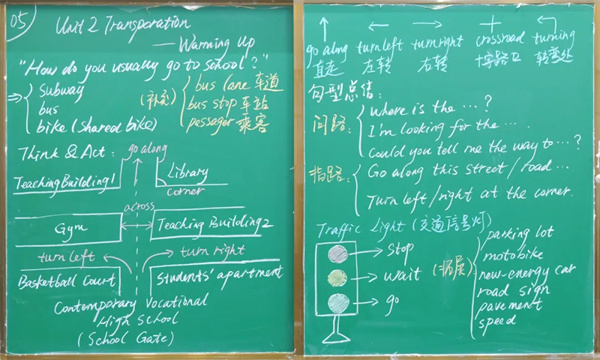 05
Unit 2 Transporation
— Warming Up
"How do you usually go to school?"
⇒ Subway
bus
bike (shared bike)
(补充)
bus lane 车道
bus stop 车站
pessager 乘客
Think & Act:
go along
Teaching Building 1
Library
corner
across
Gym
Teaching Building 2
turn left
turn right
Basketball Court
Students' apartment
Contemporary Vocational
High School
(School Gate)
go along turn left turn right crossroad turning
直走 左转 右转 十字路口 转弯处
句型总结:
问路:
Where is the …?
I'm looking for the …
Could you tell me the way to …?
指路:
Go along this street / road …
Turn left / right at the corner.
Traffic Light (交通信号灯)
stop
wait
go
(拓展)
parking lot
motobike
new-energy car
road sign
pavement
speed